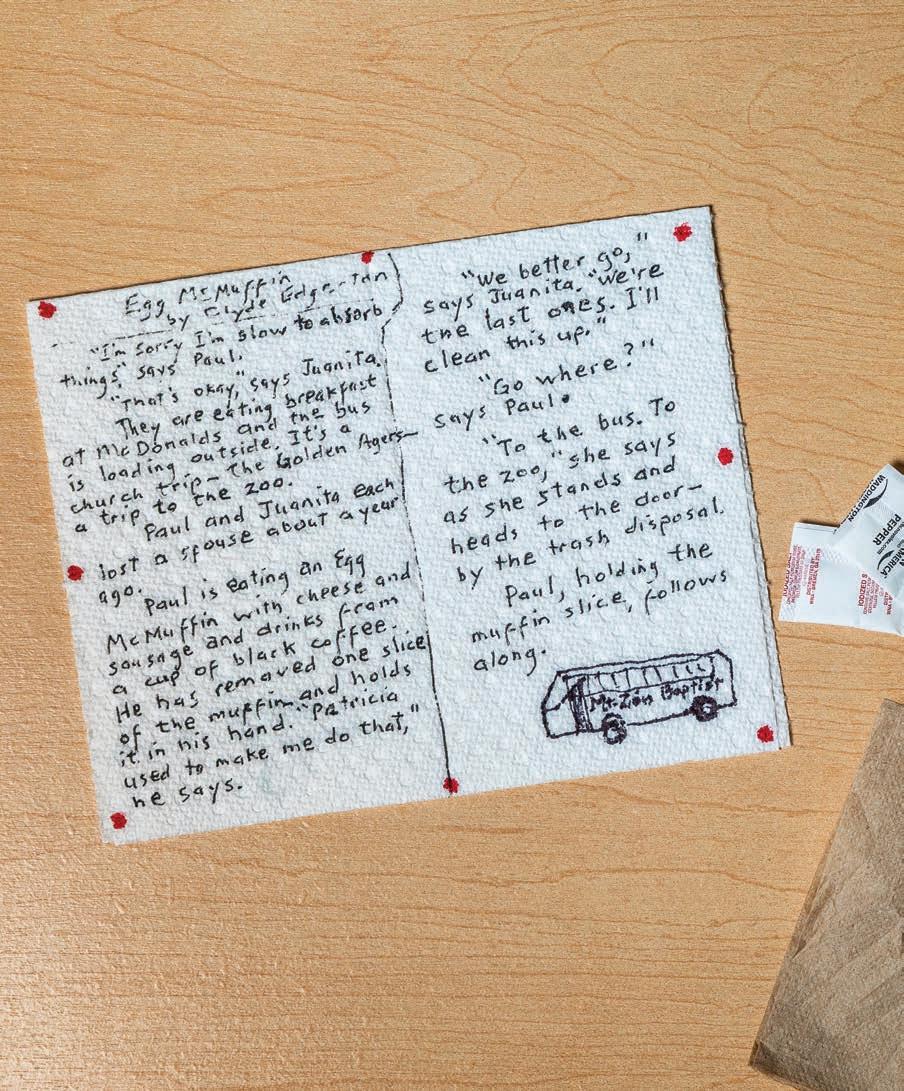 Egg McMuffin
by Clyde Edgerton
"I'm sorry I'm slow to absorb
things" says Paul.
"That's okay," says Juanita.
They are eating breakfast
at McDonalds and the bus
is loading outside. It's a
church trip—the Golden Agers—
a trip to the zoo.
Paul and Juanita each
lost a spouse about a year
ago.
Paul is eating an Egg
McMuffin with cheese and
sausage and drinks from
a cup of black coffee.
He has removed one slice
of the muffin and holds
it in his hand. "Patricia
used to make me do that,"
he says.
"We better go,"
says Juanita. "We're
the last ones. I'll
clean this up."
"Go where?"
says Paul.
"To the bus. To
the zoo," she says
as she stands and
heads to the door—
by the trash disposal.
Paul, holding the
muffin slice, follows
along.
Mt. Zion Baptist
WADDINGTON
PEPPER
AMERICA
IODIZED S